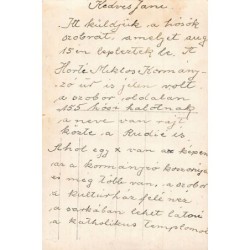 Kedves Jani
Itt küldjük a hősök
szobrát, amelyet aug
15 én lepleztek le. A
Horti Miklós Kormány-
zó úr is jelen volt a
a szobor oldalán
155 hősi halottnak
a neve van rajt
közte a Rudié is
Ahol egy x van az képen
az a kormányzó
és még több van, a szobor
a Kulturház felé néz
a sarkában lehet látni
a katholikus templomot